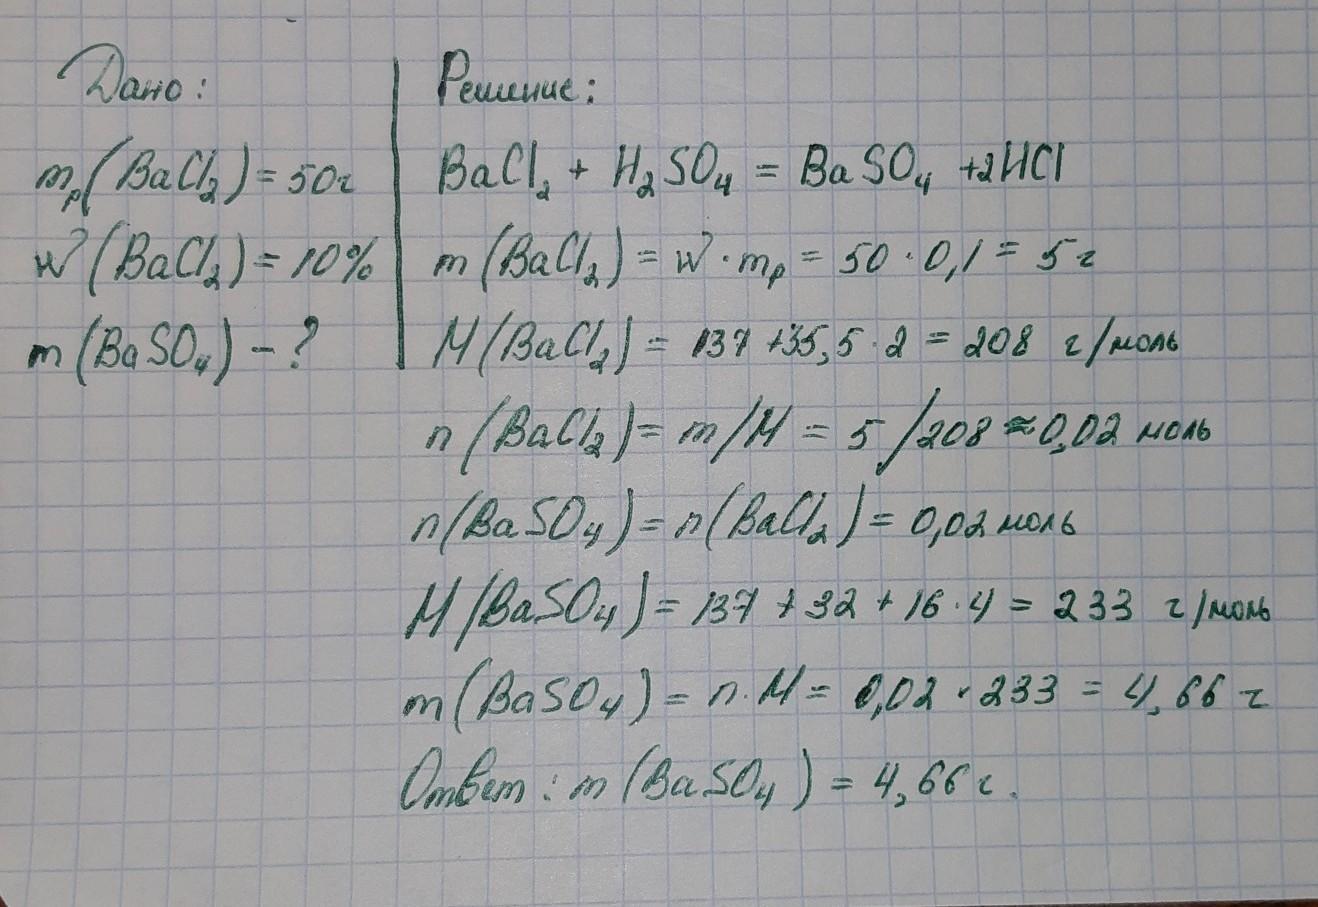 Дано:
mр(BaCl₂) = 50г
w(BaCl₂) = 10%
m(BaSO₄) - ?
Решение:
BaCl₂ + H₂SO₄ = BaSO₄ + 2HCl
m(BaCl₂) = w · mр = 50 · 0,1 = 5 г
M(BaCl₂) = 137 + 35,5 · 2 = 208 г/моль
n(BaCl₂) = m/M = 5/208 ≈ 0,02 моль
n(BaSO₄) = n(BaCl₂) = 0,02 моль
M(BaSO₄) = 137 + 32 + 16 · 4 = 233 г/моль
m(BaSO₄) = n · M = 0,02 · 233 = 4,66 г
Ответ: m(BaSO₄) = 4,66 г.